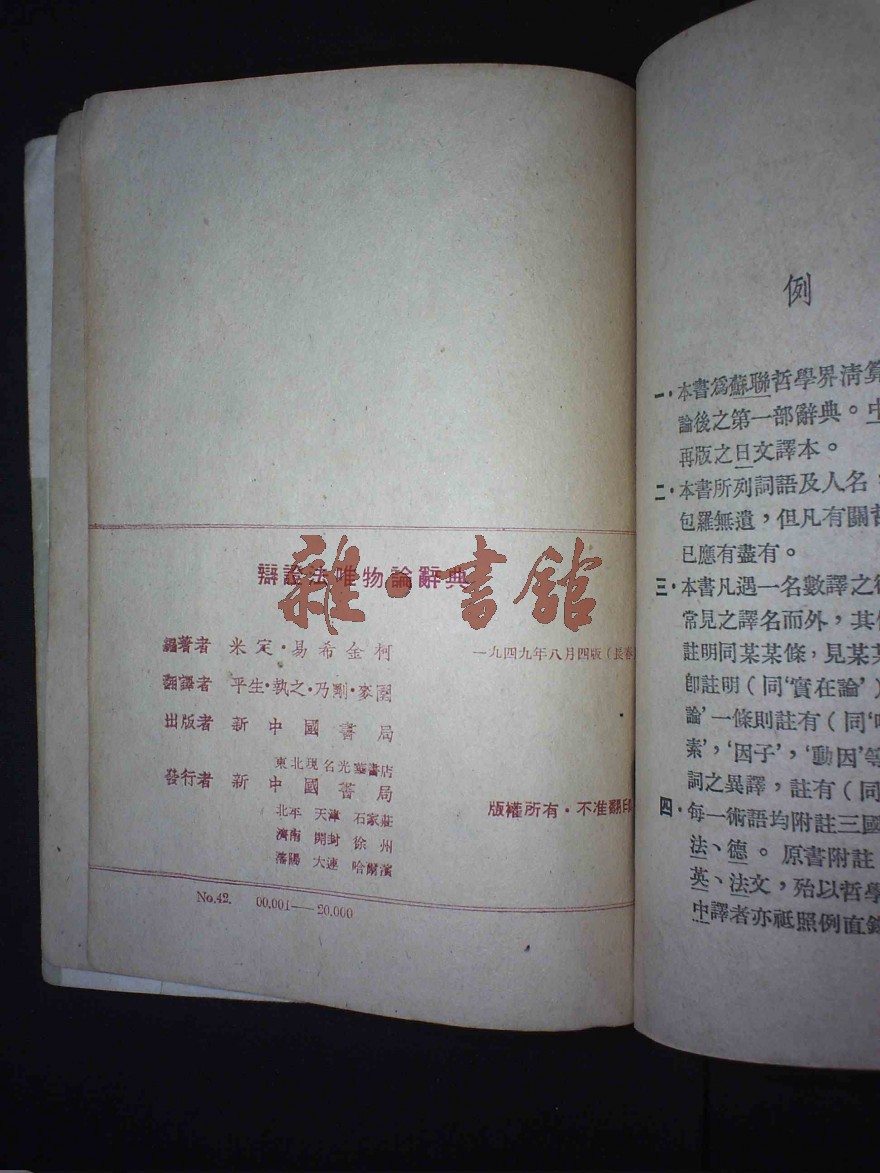 辯證法唯物論辭典
雜·書館
編著者 米定·易希金柯
一九四九年八月四版(長春
翻譯者 平生·執之·乃剛·麥園
出版者 新中國書局
東北現名光華書店
發行者 新中國書局
北平 天津 石家莊
濟南 開封 徐州
瀋陽 大連 哈爾濱
版權所有·不准翻印
No.42. 00,001—20,000
例
一·本書爲蘇聯哲學界清算
論後之第一部辭典。中
再版之日文譯本。
二·本書所列詞語及人名,
包羅無遺,但凡有關哲
已應有盡有。
三·本書凡遇一名數譯之
常見之譯名而外,其
註明同某某條,見某某
卽註明(同‘實在論’)
論’一條則註有(同‘唯
素’,‘因子’,‘動因’等
詞之異譯,註有(同
四·每一術語均附註三國
法、德。原書附註
英、法文,殆以哲學
中譯者亦祗照例直錄